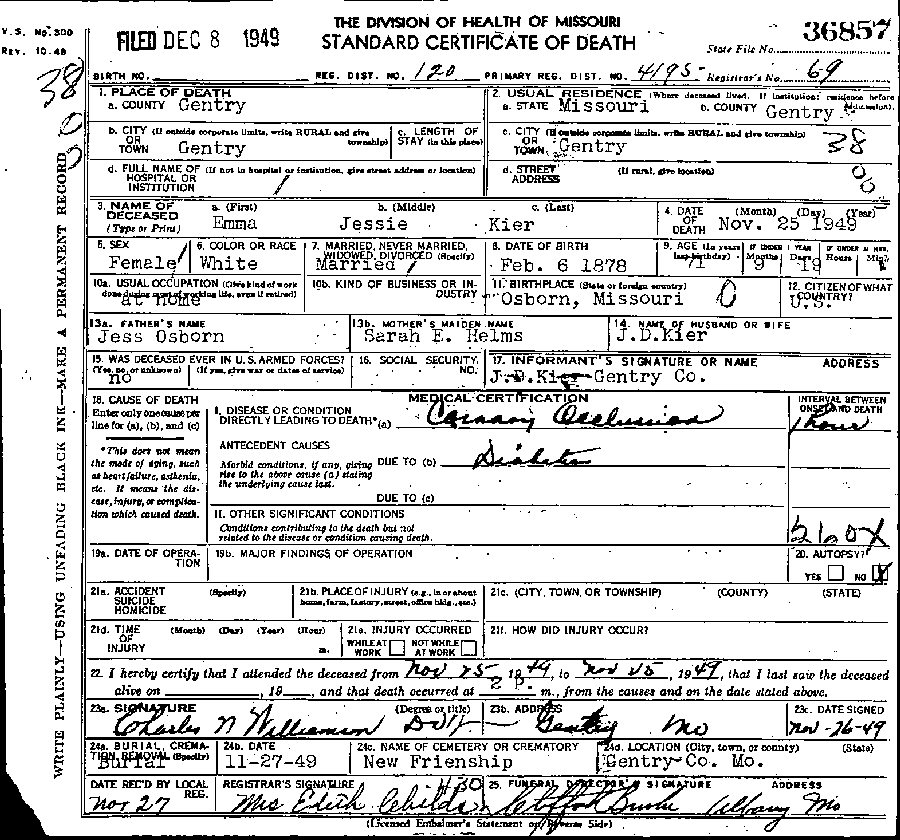 THE DIVISION OF HEALTH OF MISSOURI
STANDARD CERTIFICATE OF DEATH
V. S. No. 300
REV. 10-48
FILED DEC 8 1949
36857
State File No.
38
BIRTH NO. REG. DIST. NO. 120 PRIMARY REG. DIST. NO. 4195 Registrar's No. 69
WRITE PLAINLY—USING UNFADING BLACK INK—MAKE A PERMANENT RECORD
1. PLACE OF DEATH
a. COUNTY Gentry
2. USUAL RESIDENCE (Where deceased lived. If institution: residence before admission).
a. STATE Missouri b. COUNTY Gentry
b. CITY (If outside corporate limits, write RURAL and give township)
OR TOWN Gentry
c. LENGTH OF STAY (in this place)
c. CITY (If outside corporate limits, write RURAL and give township)
OR TOWN Gentry
38
d. FULL NAME OF HOSPITAL OR INSTITUTION (If not in hospital or institution, give street address or location)
d. STREET ADDRESS (If rural, give location)
3. NAME OF DECEASED (Type or Print)
a. (First) Emma
b. (Middle) Jessie
c. (Last) Kier
4. DATE OF DEATH (Month) (Day) (Year)
Nov. 25 1949
5. SEX
Female
6. COLOR OR RACE
White
7. MARRIED, NEVER MARRIED, WIDOWED, DIVORCED (Specify)
Married
8. DATE OF BIRTH
Feb. 6 1878
9. AGE (In years last birthday) 71
IF UNDER 1 YEAR Months 9 Days 19
IF UNDER 24 HRS. Hours Min.
10a. USUAL OCCUPATION (Give kind of work done during most of working life, even if retired)
at home
10b. KIND OF BUSINESS OR INDUSTRY
11. BIRTHPLACE (State or foreign country)
Osborn, Missouri
12. CITIZEN OF WHAT COUNTRY?
U.S.
13a. FATHER'S NAME
Jess Osborn
13b. MOTHER'S MAIDEN NAME
Sarah E. Helms
14. NAME OF HUSBAND OR WIFE
J.D.Kier
15. WAS DECEASED EVER IN U.S. ARMED FORCES?
(Yes, no, or unknown) (If yes, give war or dates of service)
no
16. SOCIAL SECURITY NO.
17. INFORMANT'S SIGNATURE OR NAME ADDRESS
J.D.Kier Gentry Co.
18. CAUSE OF DEATH
Enter only one cause per line for (a), (b), and (c)
*This does not mean the mode of dying, such as heart failure, asthenia, etc. It means the disease, injury, or complication which caused death.
MEDICAL CERTIFICATION
I. DISEASE OR CONDITION DIRECTLY LEADING TO DEATH*(a) Coronary Occlusion
INTERVAL BETWEEN ONSET AND DEATH
1 hour
ANTECEDENT CAUSES
Morbid conditions, if any, giving rise to the above cause (a) stating the underlying cause last.
DUE TO (b) Diabetes
DUE TO (c)
II. OTHER SIGNIFICANT CONDITIONS
Conditions contributing to the death but not related to the disease or condition causing death.
260X
19a. DATE OF OPERATION
19b. MAJOR FINDINGS OF OPERATION
20. AUTOPSY?
YES NO X
21a. ACCIDENT SUICIDE HOMICIDE (Specify)
21b. PLACE OF INJURY (e.g., in or about home, farm, factory, street, office bldg., etc.)
21c. (CITY, TOWN, OR TOWNSHIP) (COUNTY) (STATE)
21d. TIME OF INJURY (Month) (Day) (Year) (Hour) m.
21e. INJURY OCCURRED
WHILE AT WORK NOT WHILE AT WORK
21f. HOW DID INJURY OCCUR?
22. I hereby certify that I attended the deceased from Nov 25, 1949, to Nov 25, 1949, that I last saw the deceased
alive on , 19 , and that death occurred at 2 P. m., from the causes and on the date stated above.
23a. SIGNATURE (Degree or title)
Charles N Williamson
23b. ADDRESS
Gentry Mo
23c. DATE SIGNED
Nov-26-49
24a. BURIAL, CREMATION, REMOVAL (Specify)
Burial
24b. DATE
11-27-49
24c. NAME OF CEMETERY OR CREMATORY
New Frienship
24d. LOCATION (City, town, or county) (State)
Gentry Co. Mo.
DATE REC'D BY LOCAL REG.
Nov 27
REGISTRAR'S SIGNATURE
Mrs Edith Childs
25. FUNERAL DIRECTOR'S SIGNATURE ADDRESS
Albany Mo
(Licensed Embalmer's Statement on Reverse Side)